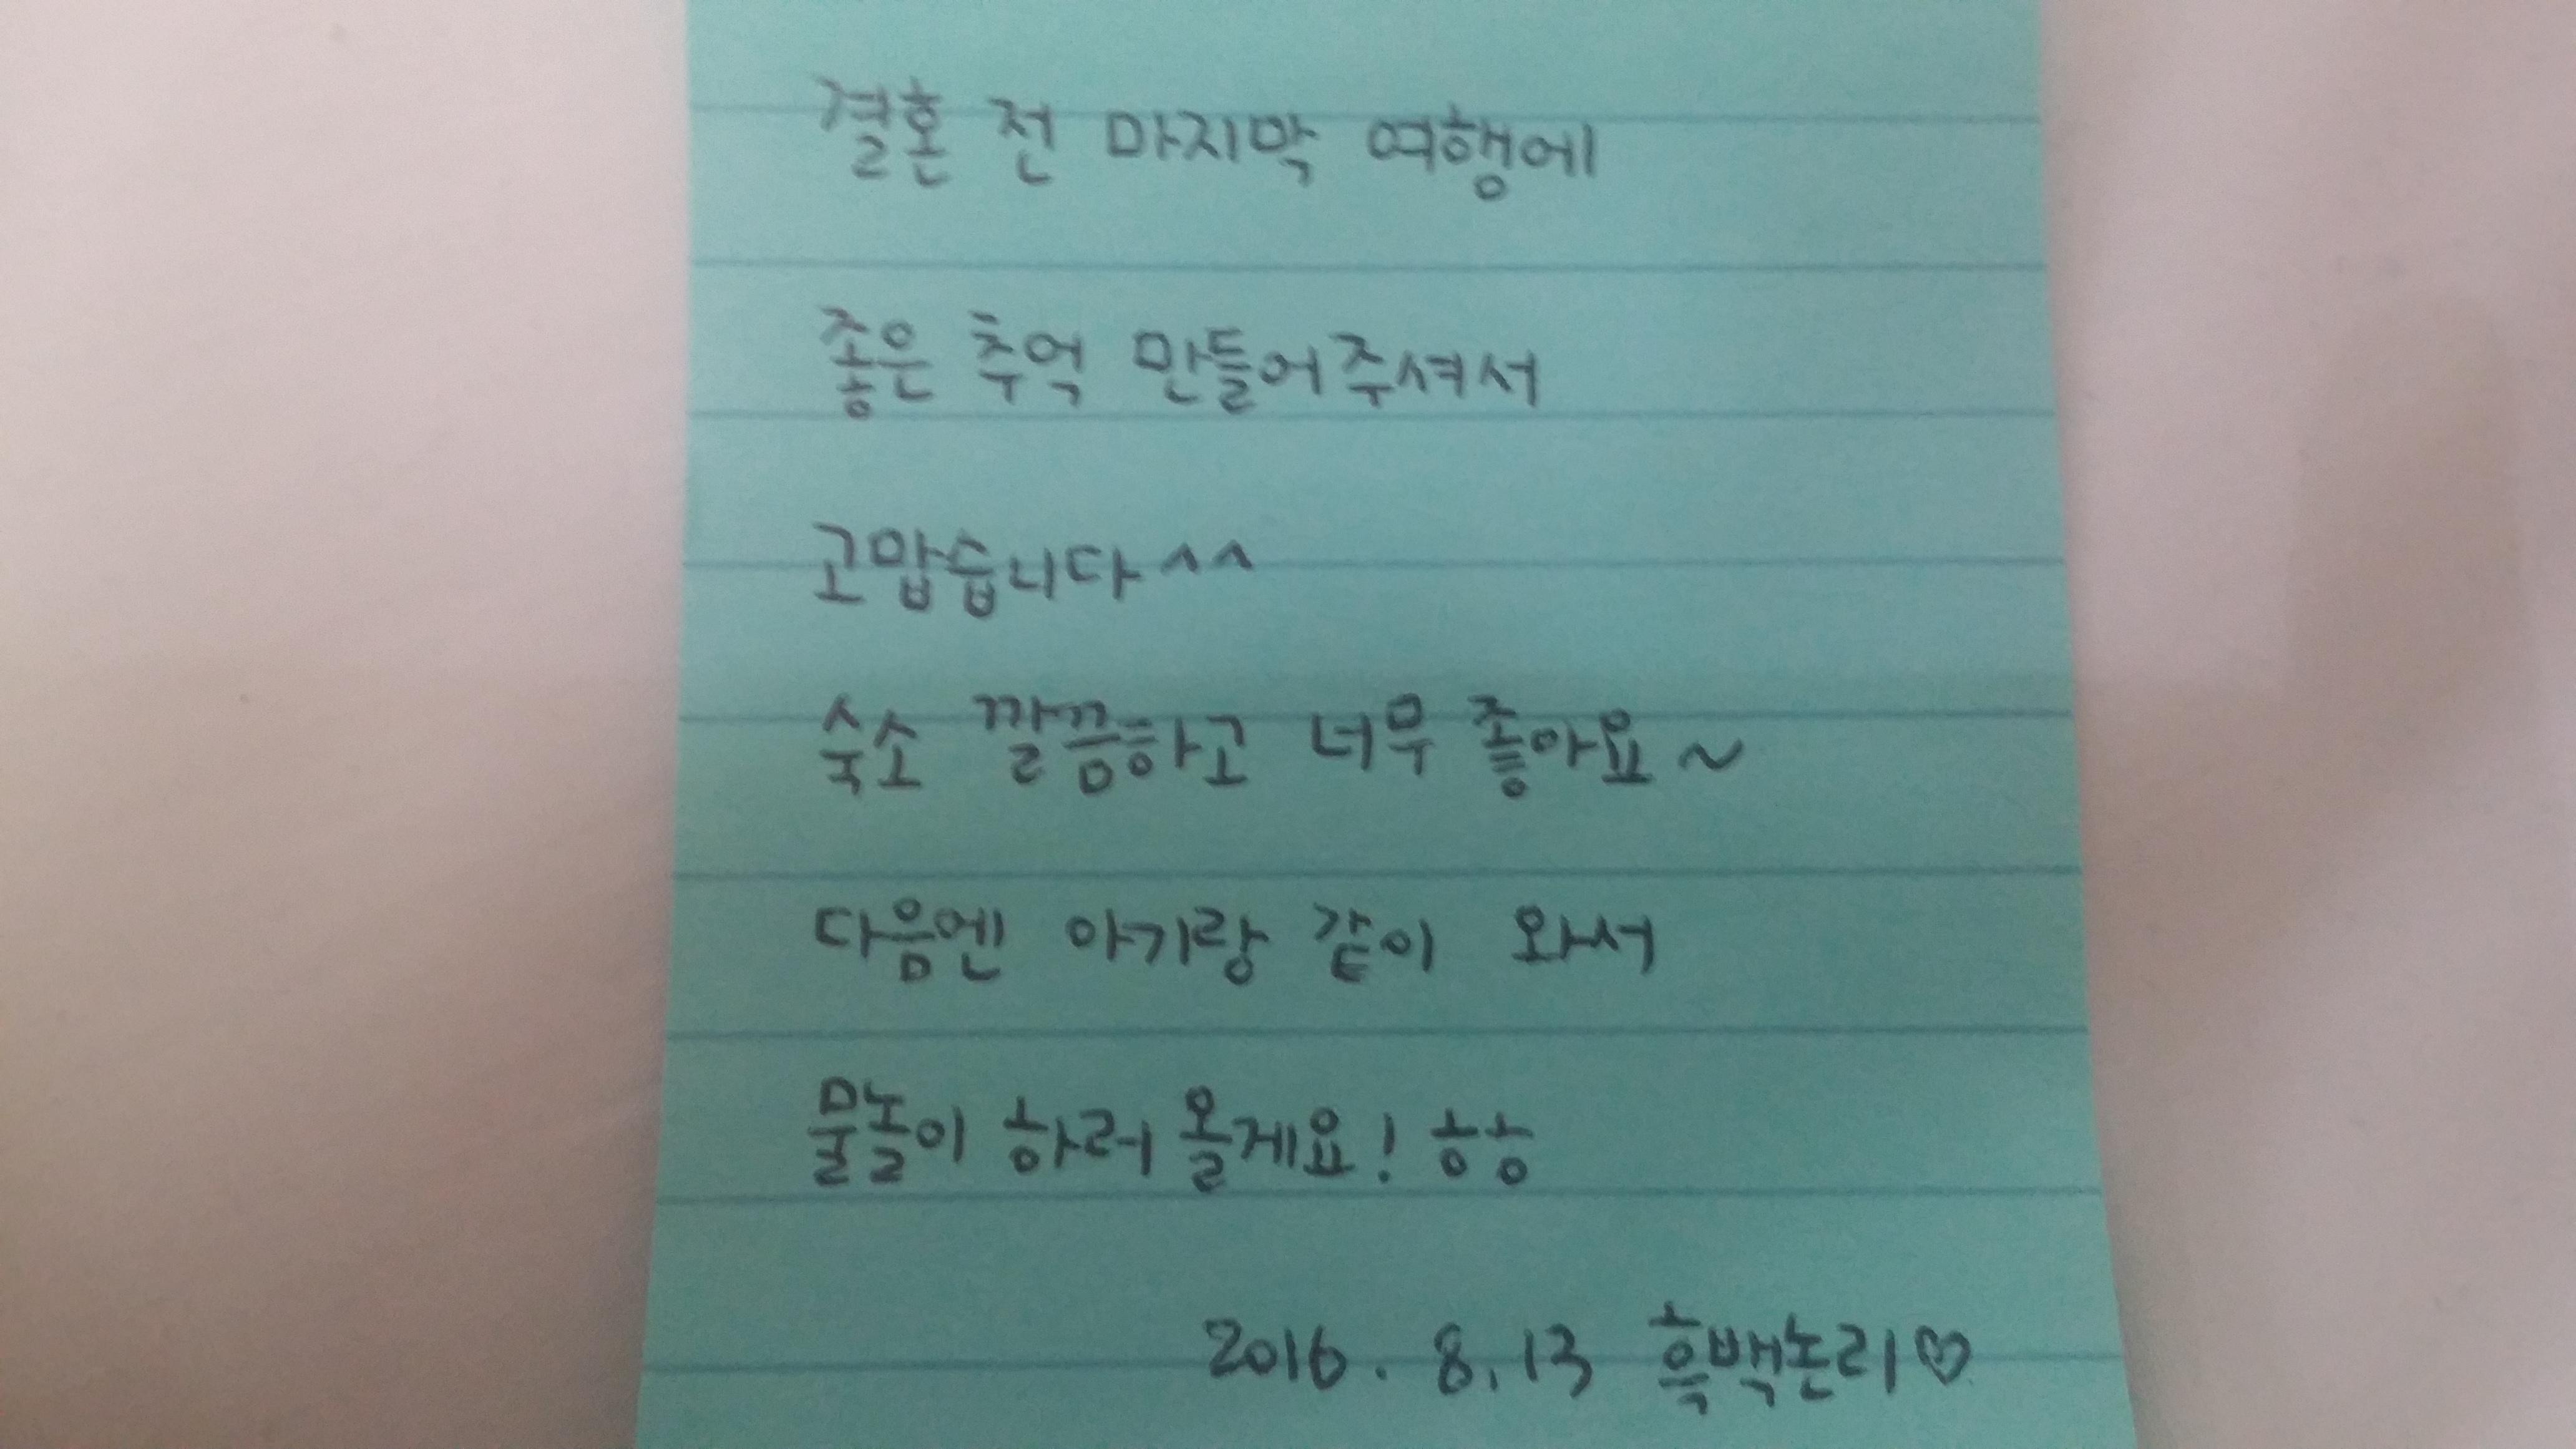 결혼 전 마지막 여행에
좋은 추억 만들어주셔서
고맙습니다^^
숙소 깔끔하고 너무 좋아요~
다음엔 아기랑 같이 와서
물놀이 하러 올게요! ㅎㅎ
2016. 8. 13 흑백논리♡